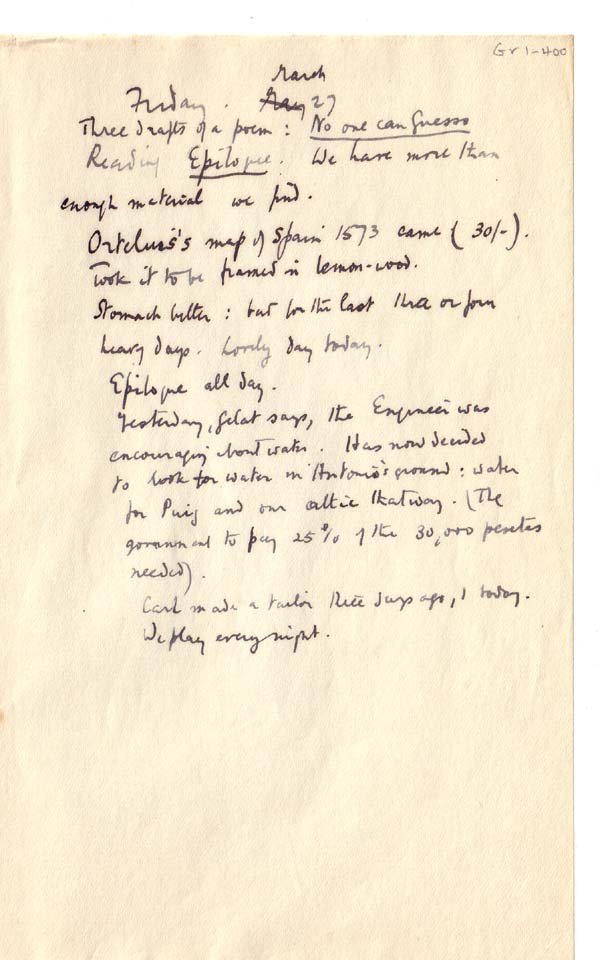 Gr 1-400
March
Friday. May 27
Three drafts of a poem: No one can Guess
Reading Epilogue. We have more than
enough material we find.
Ortelius's map of Spain 1573 came (30/-).
Took it to be framed in lemon-wood.
Stomach better: bad for the last three or four
heavy days. Lovely day today.
Epilogue all day.
Yesterday, Gelat says, the Engineer was
encouraging about water. Has now decided
to look for water in Antonio's ground: water
for Puig and our attic that way. (The
government to pay 25% of the 30,000 pesetas
needed).
Carl made a tailor three days ago, I today.
We play every night.